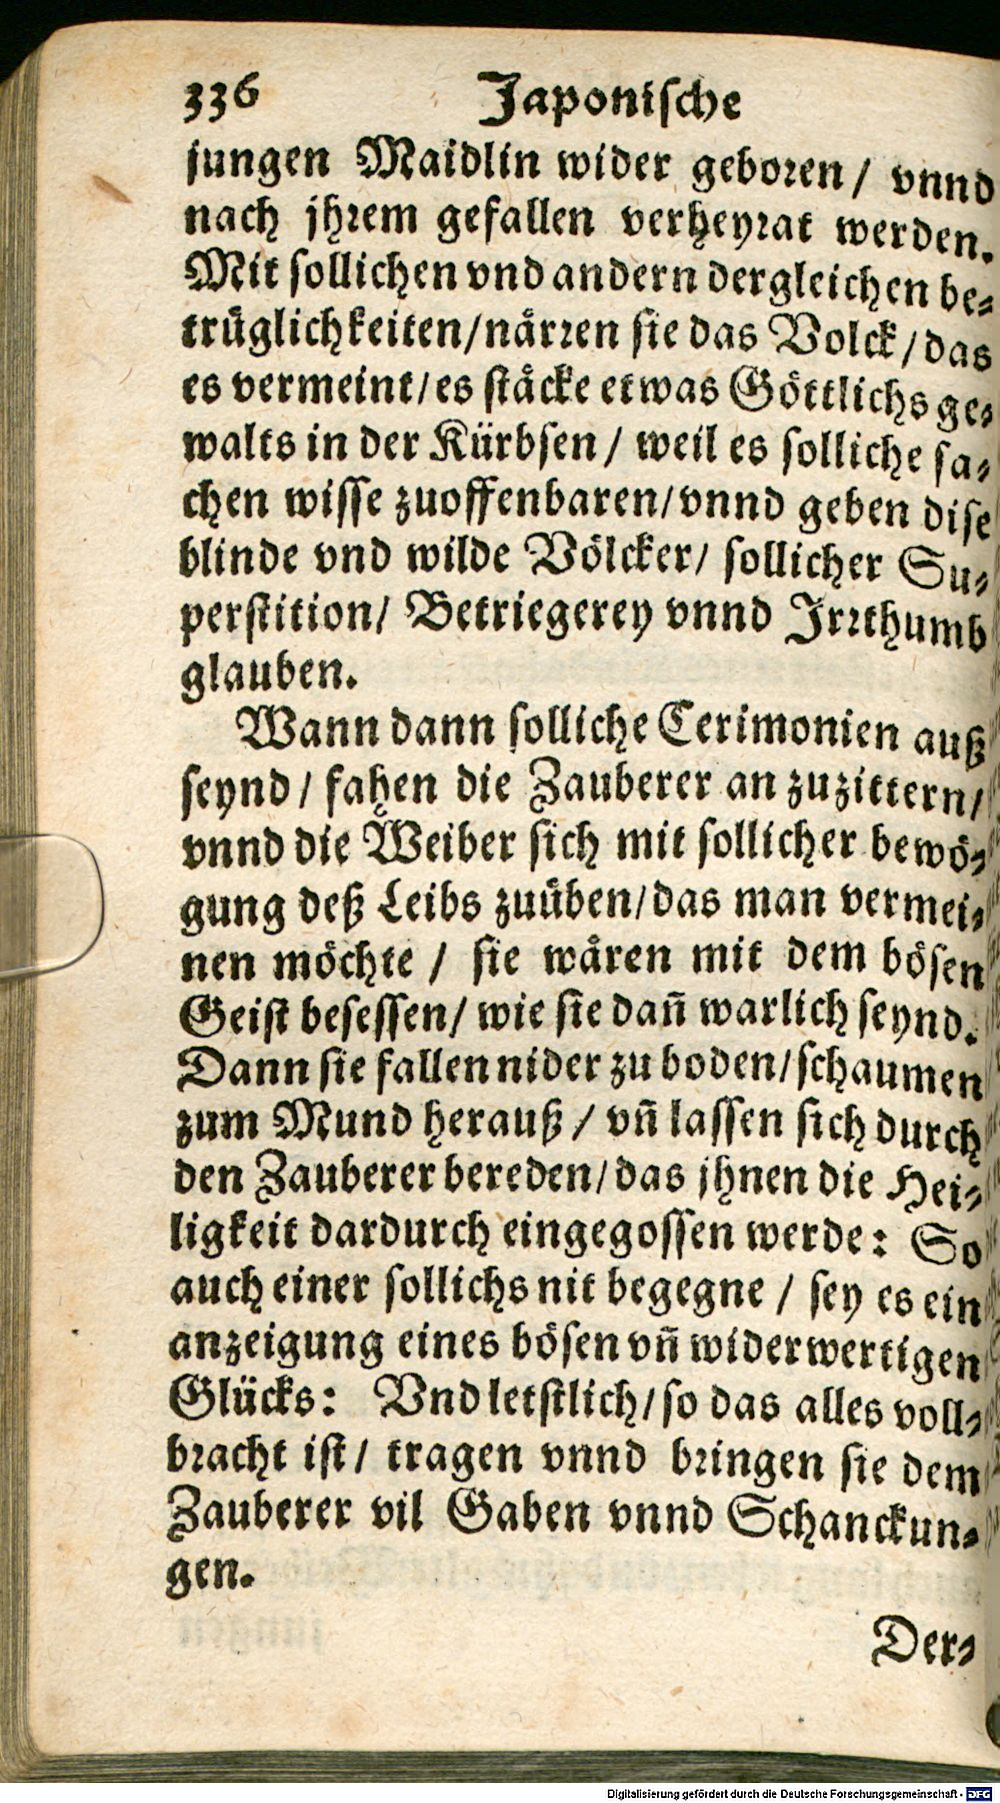 336 Japonische
jungen Maidlin wider geboꝛen / vnnd
nach jhꝛem gefallen verheyꝛat werden.
Mit ſollichen vnd andern dergleichen be⸗
truͤglichkeiten/naͤrꝛen ſie das Volck/das
es vermeint/es ſtaͤcke etwas Goͤttlichs ge⸗
walts in der Kuͤrbſen / weil es ſolliche ſa⸗
chen wiſſe zuoffenbaren/vnnd geben diſe
blinde vnd wilde Voͤlcker/ ſollicher Su⸗
perſtition/ Betriegerey vnnd Jrꝛthumb
glauben.
Wann dann ſolliche Cerimonien auß
ſeynd / fahen die Zauberer an zuzittern/
vnnd die Weiber ſich mit ſollicher bewoͤ⸗
gung deß Leibs zuuͤben/das man vermei⸗
nen moͤchte / ſie waͤren mit dem boͤſen
Geiſt beſeſſen/ wie ſie dañ warlich ſeynd.
Dann ſie fallen nider zu boden/ſchaumen
zum Mund herauß / vñ laſſen ſich durch
den Zauberer bereden/das jhnen die Hei⸗
ligkeit dardurch eingegoſſen werde: So
auch einer ſollichs nit begegne / ſey es ein
anzeigung eines boͤſen vñ widerwertigen
Gluͤcks: Vnd letſtlich/ſo das alles voll⸗
bꝛacht iſt/ tragen vnnd bꝛingen ſie dem
Zauberer vil Gaben vnnd Schanckun⸗
gen.
Der⸗
Digitalisierung gefördert durch die Deutsche Forschungsgemeinschaft - DFG